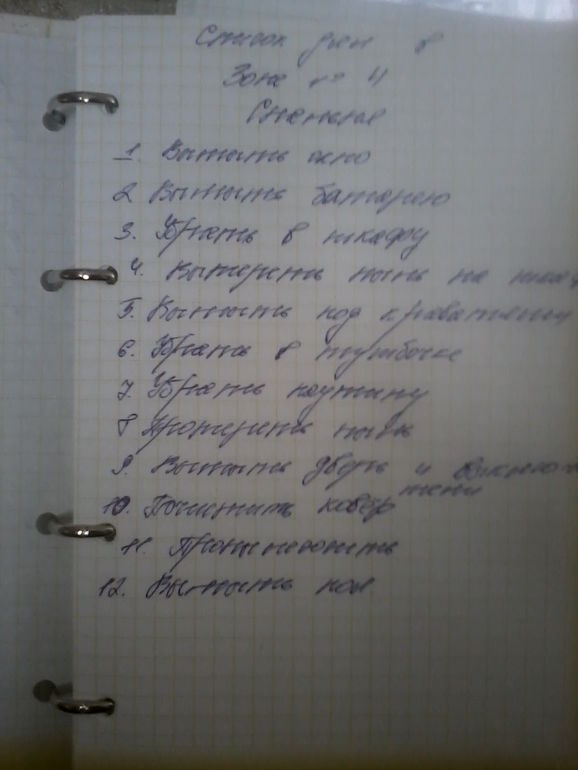 Список дел в
Зоне № 4
Спальня
1. Вымыть окно
2 Вымыть батарею
3. Убрать в шкафу
4. Вытереть пыль на
5. Вымыть под кроватями
6. Убрать в тумбочке
7. Убрать паутину
8 Протереть пыль
9. Вымыть дверь и выключа-
тели
10. Почистить ковёр
11. Пропылесосить
12. Вымыть пол